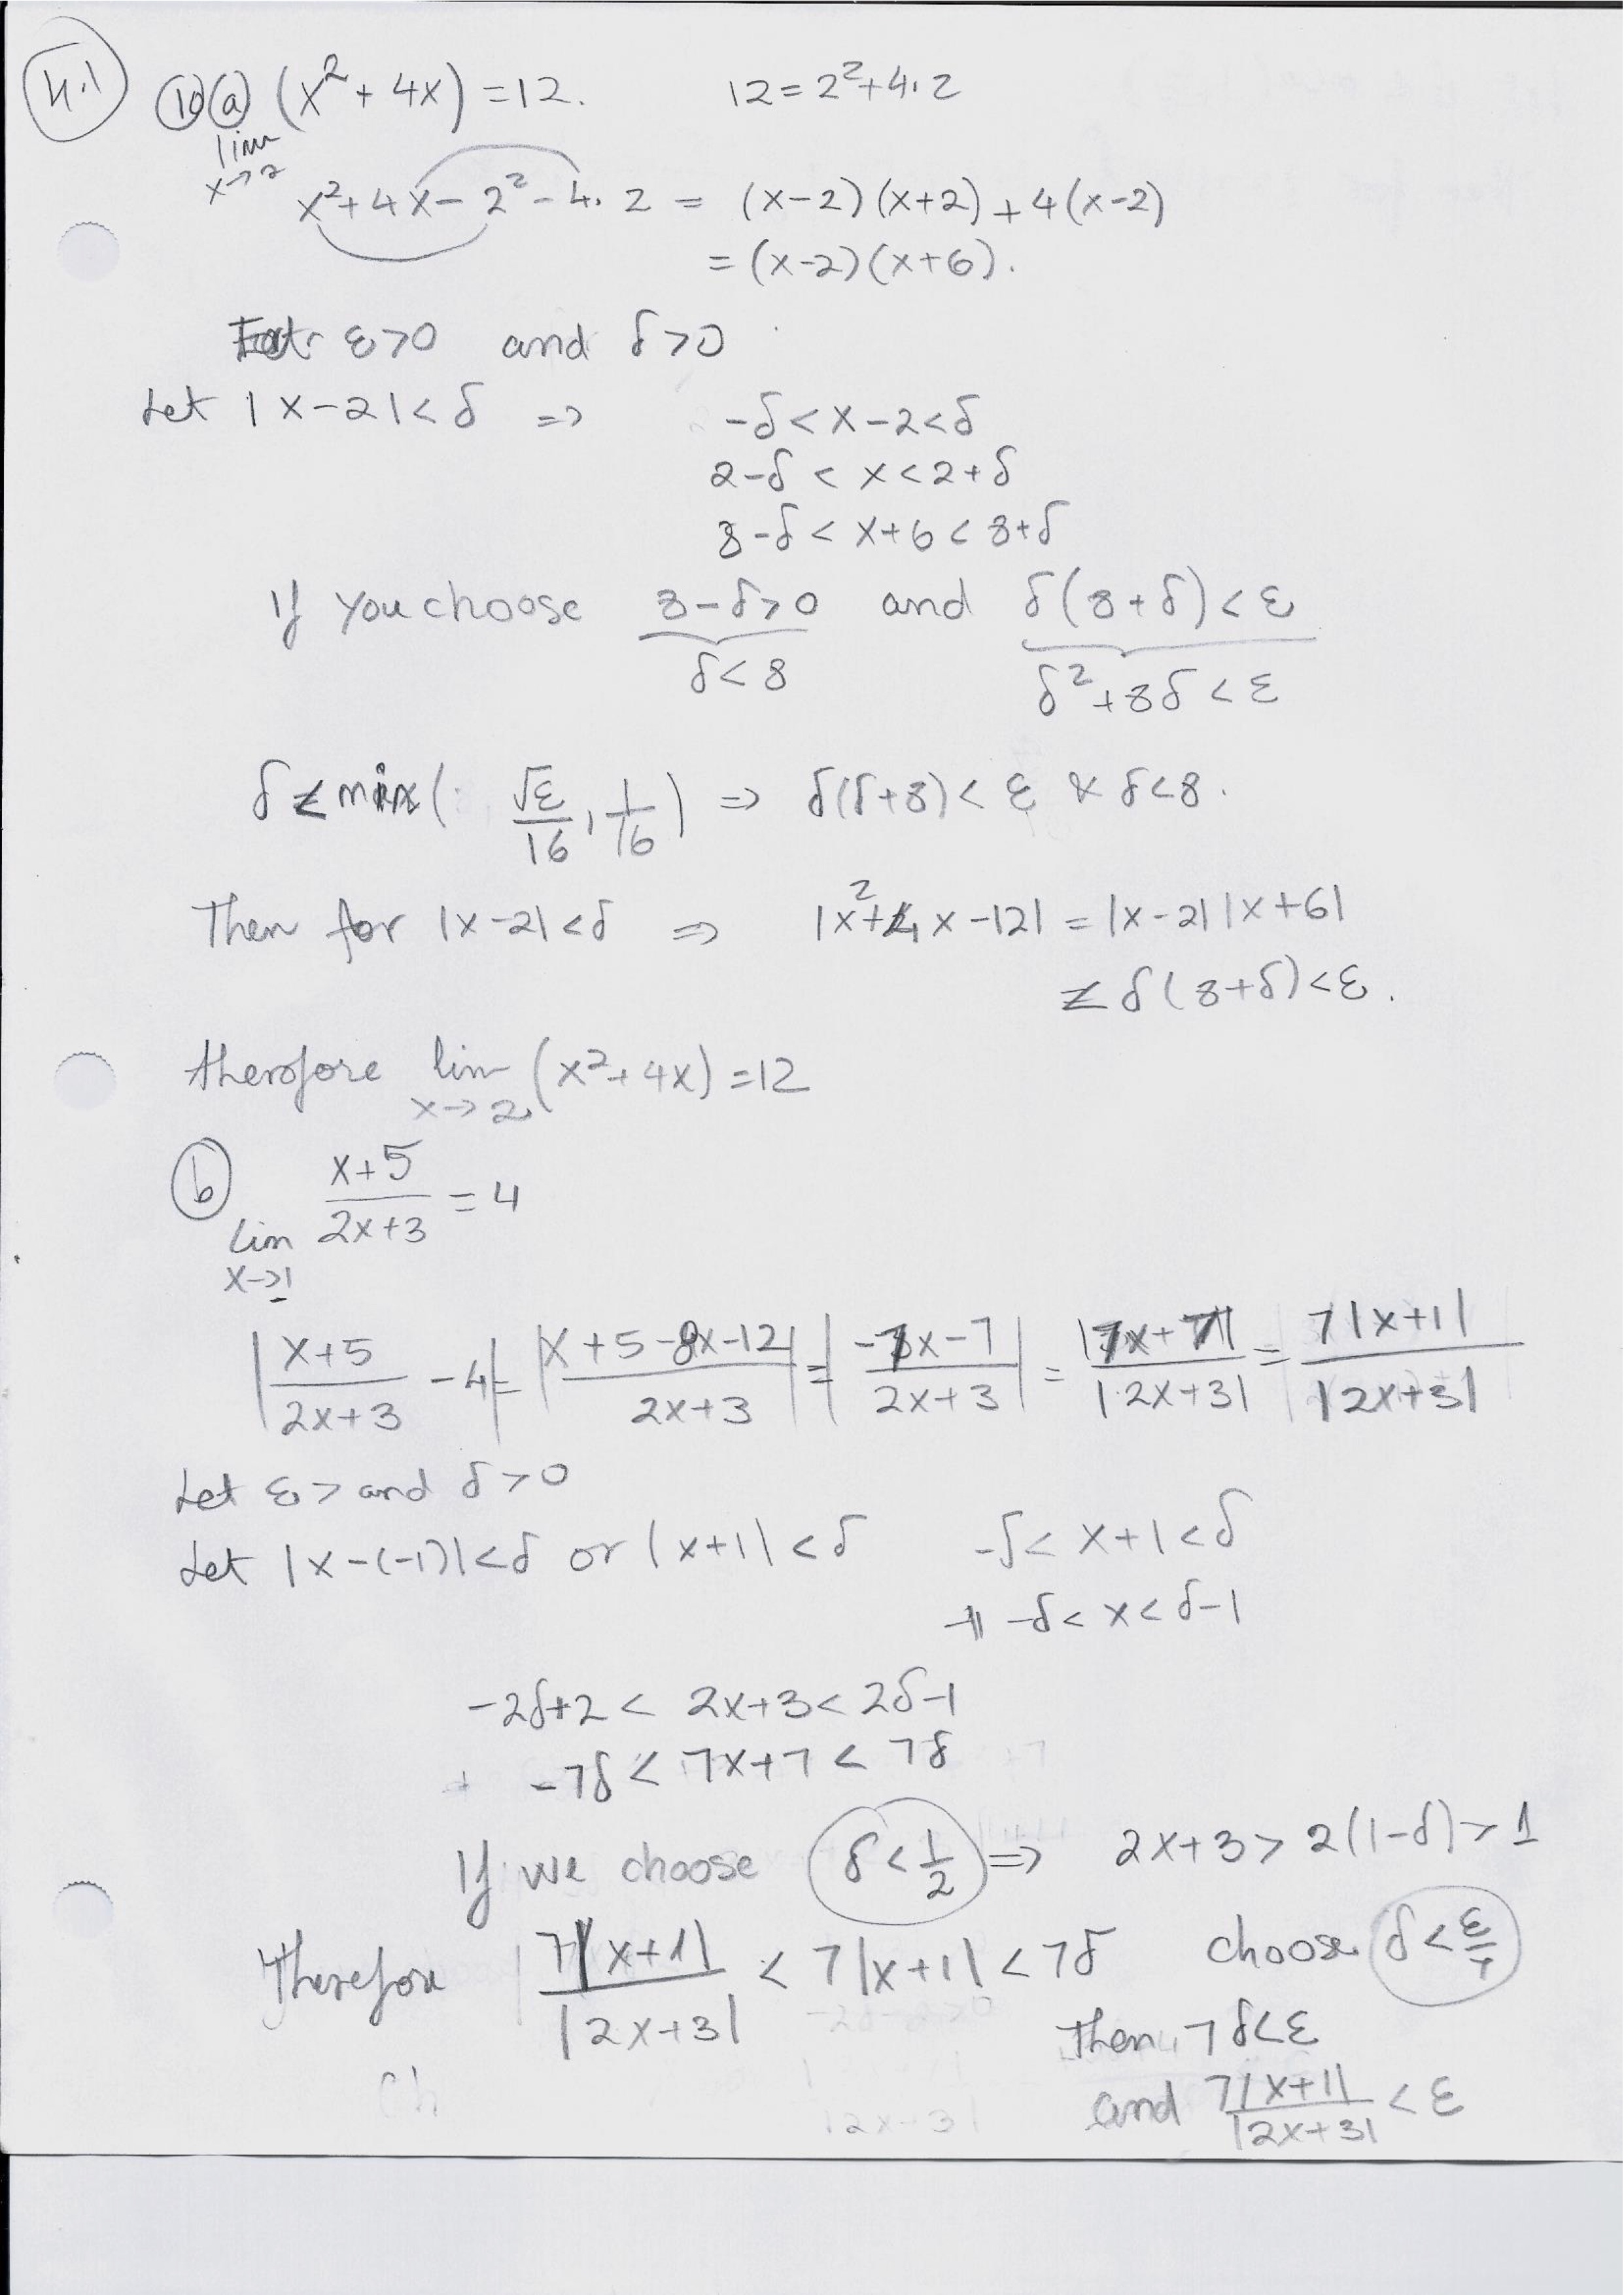 4.1 10 a (x² + 4x) = 12. 12 = 2² + 4·2
lim x→2
x² + 4x - 2² - 4·2 = (x-2)(x+2) + 4(x-2)
= (x-2)(x+6).
For ε>0 and δ>0
Let |x-2|<δ => -δ < x-2 < δ
2-δ < x < 2+δ
8-δ < x+6 < 8+δ
If you choose 8-δ>0 and δ(8+δ)<ε
δ<8 δ²+8δ<ε
δ < min(√ε/16, 1/16) => δ(δ+8) < ε & δ<8.
Then for |x-2|<δ => |x²+4x-12| = |x-2||x+6|
≤ δ(8+δ)<ε.
therefore lim x→2 (x²+4x) = 12
b (x+5)/(2x+3) = 4
lim
x→1
|(x+5)/(2x+3) - 4| = |(x+5-8x-12)/(2x+3)| = |(-7x-7)/(2x+3)| = |7x+7|/|2x+3| = 7|x+1|/|2x+3|
Let ε> and δ>0
Let |x-(-1)|<δ or |x+1|<δ -δ < x+1 < δ
-1-δ < x < δ-1
-2δ+2 < 2x+3 < 2δ-1
-7δ < 7x+7 < 7δ
If we choose δ<1/2 => 2x+3 > 2(1-δ) > 1
Therefore 7|x+1|/|2x+3| < 7|x+1| < 7δ choose δ<ε/7
then 7δ<ε
and 7|x+1|/|2x+3| < ε